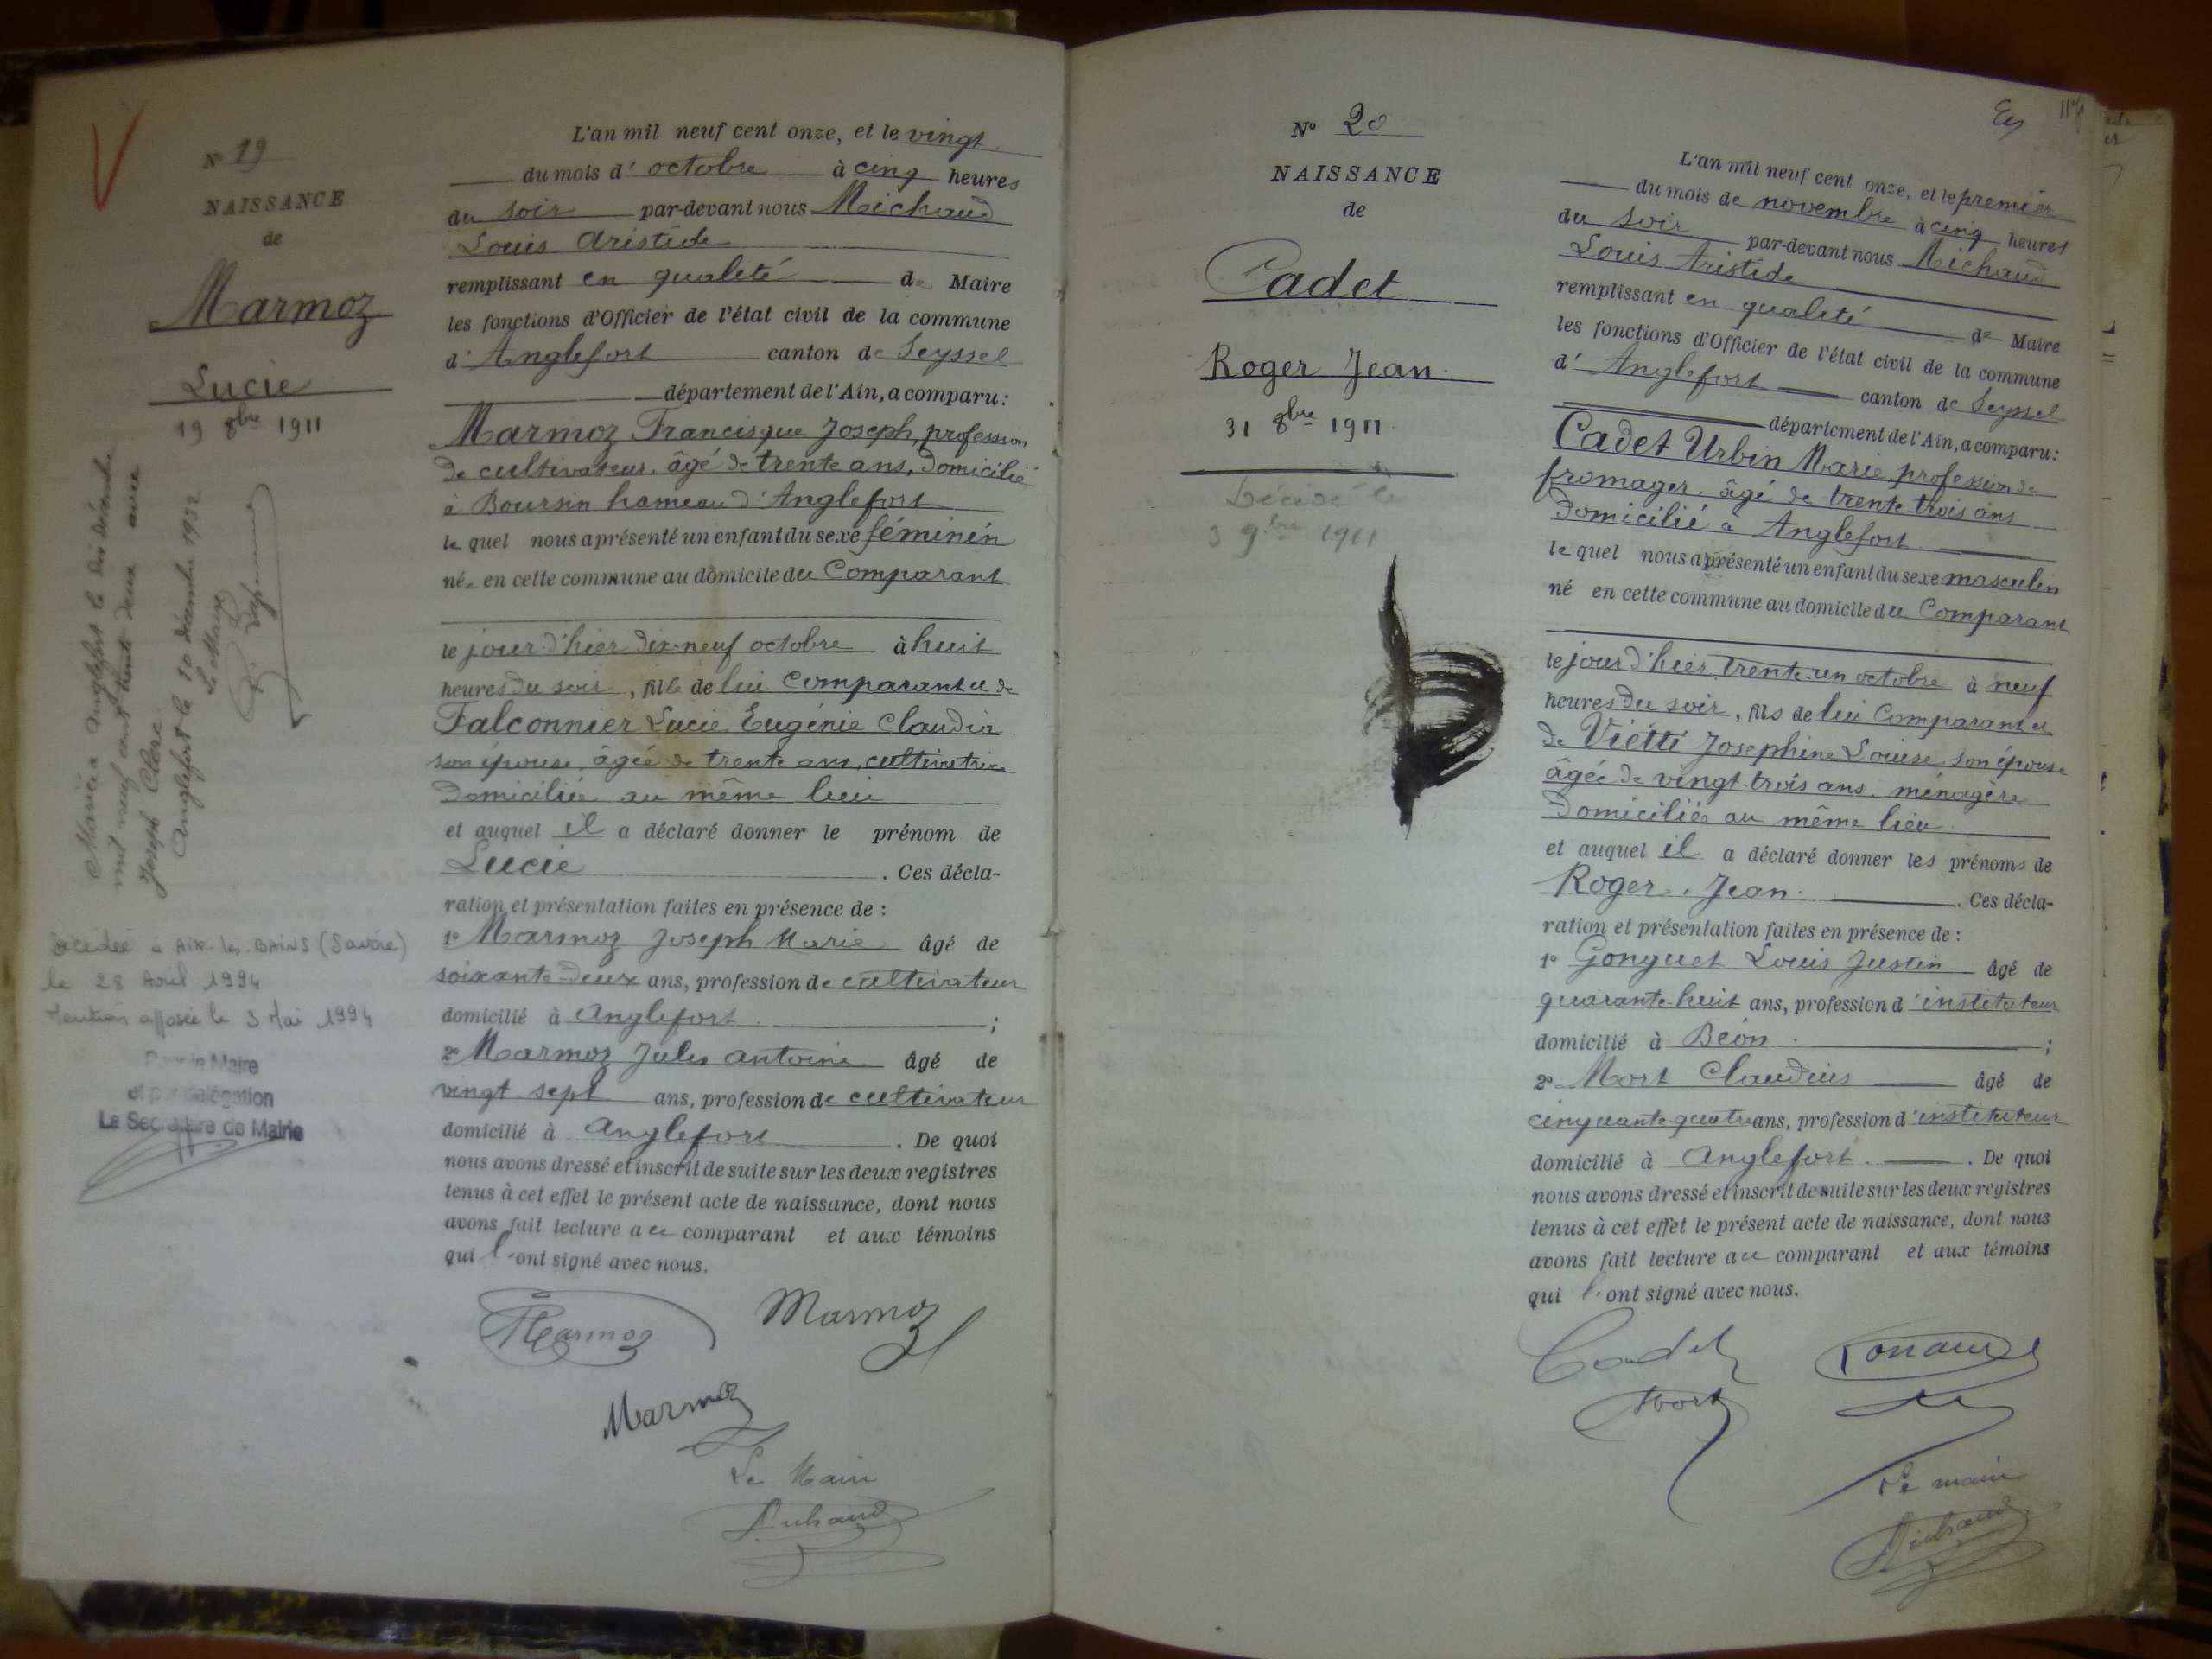 N° 19
NAISSANCE
de
Marmoz
Lucie
19 8bre 1911
Mariée à Anglefort le dix décembre
mil neuf cent trente deux avec
Joseph Clerc
Anglefort le 10 décembre 1932
Le Maire
Décédée à AIX-les-BAINS (Savoie)
le 28 Avril 1994
Mention apposée le 3 Mai 1994
Pour le Maire
et par délégation
La Secrétaire de Mairie
L'an mil neuf cent onze, et le vingt
du mois d'octobre à cinq heures
du soir par-devant nous Michaud
Louis Aristide
remplissant en qualité de Maire
les fonctions d'Officier de l'état civil de la commune
d'Anglefort canton de Seyssel
département de l'Ain, a comparu:
Marmoz Francisque Joseph, profession
de cultivateur, âgé de trente ans, domicilié
à Boursin hameau d'Anglefort
le quel nous a présenté un enfant du sexe féminin
née en cette commune au domicile du Comparant
le jour d'hier dix-neuf octobre à huit
heures du soir, fille de lui comparant et de
Falconnier Lucie Eugénie Claudia
son épouse, âgée de trente ans, cultivatrice
domiciliée au même lieu
et auquel il a déclaré donner le prénom de
Lucie. Ces décla-
ration et présentation faites en présence de :
1° Marmoz Joseph Marie âgé de
soixante-deux ans, profession de cultivateur
domicilié à Anglefort ;
2° Marmoz Jules Antoine âgé de
vingt sept ans, profession de cultivateur
domicilié à Anglefort. De quoi
nous avons dressé et inscrit de suite sur les deux registres
tenus à cet effet le présent acte de naissance, dont nous
avons fait lecture au comparant et aux témoins
qui l'ont signé avec nous.
Marmoz Marmoz
Marmoz
Le Maire
Michaud
N° 20
NAISSANCE
de
Cadet
Roger Jean
31 8bre 1911
Décédé le
3 9bre 1911
L'an mil neuf cent onze, et le premier
du mois de novembre à cinq heures
du soir par-devant nous Michaud
Louis Aristide
remplissant en qualité de Maire
les fonctions d'Officier de l'état civil de la commune
d'Anglefort canton de Seyssel
département de l'Ain, a comparu:
Cadet Urbin Marie, profession de
fromager, âgé de trente-trois ans
domicilié à Anglefort
le quel nous a présenté un enfant du sexe masculin
né en cette commune au domicile du Comparant
le jour d'hier, trente-un octobre à neuf
heures du soir, fils de lui Comparant et
de Vietti Josephine Louise son épouse
âgée de vingt-trois ans, ménagère
domiciliée au même lieu
et auquel il a déclaré donner les prénoms de
Roger, Jean. Ces décla-
ration et présentation faites en présence de :
1° Gonguet Louis Justin âgé de
quarante-huit ans, profession d'instituteur
domicilié à Béon ;
2° Mort Claudius âgé de
cinquante-quatre ans, profession d'instituteur
domicilié à Anglefort. De quoi
nous avons dressé et inscrit de suite sur les deux registres
tenus à cet effet le présent acte de naissance, dont nous
avons fait lecture au comparant et aux témoins
qui l'ont signé avec nous.
Cadet
Mort
Le maire
Michaud